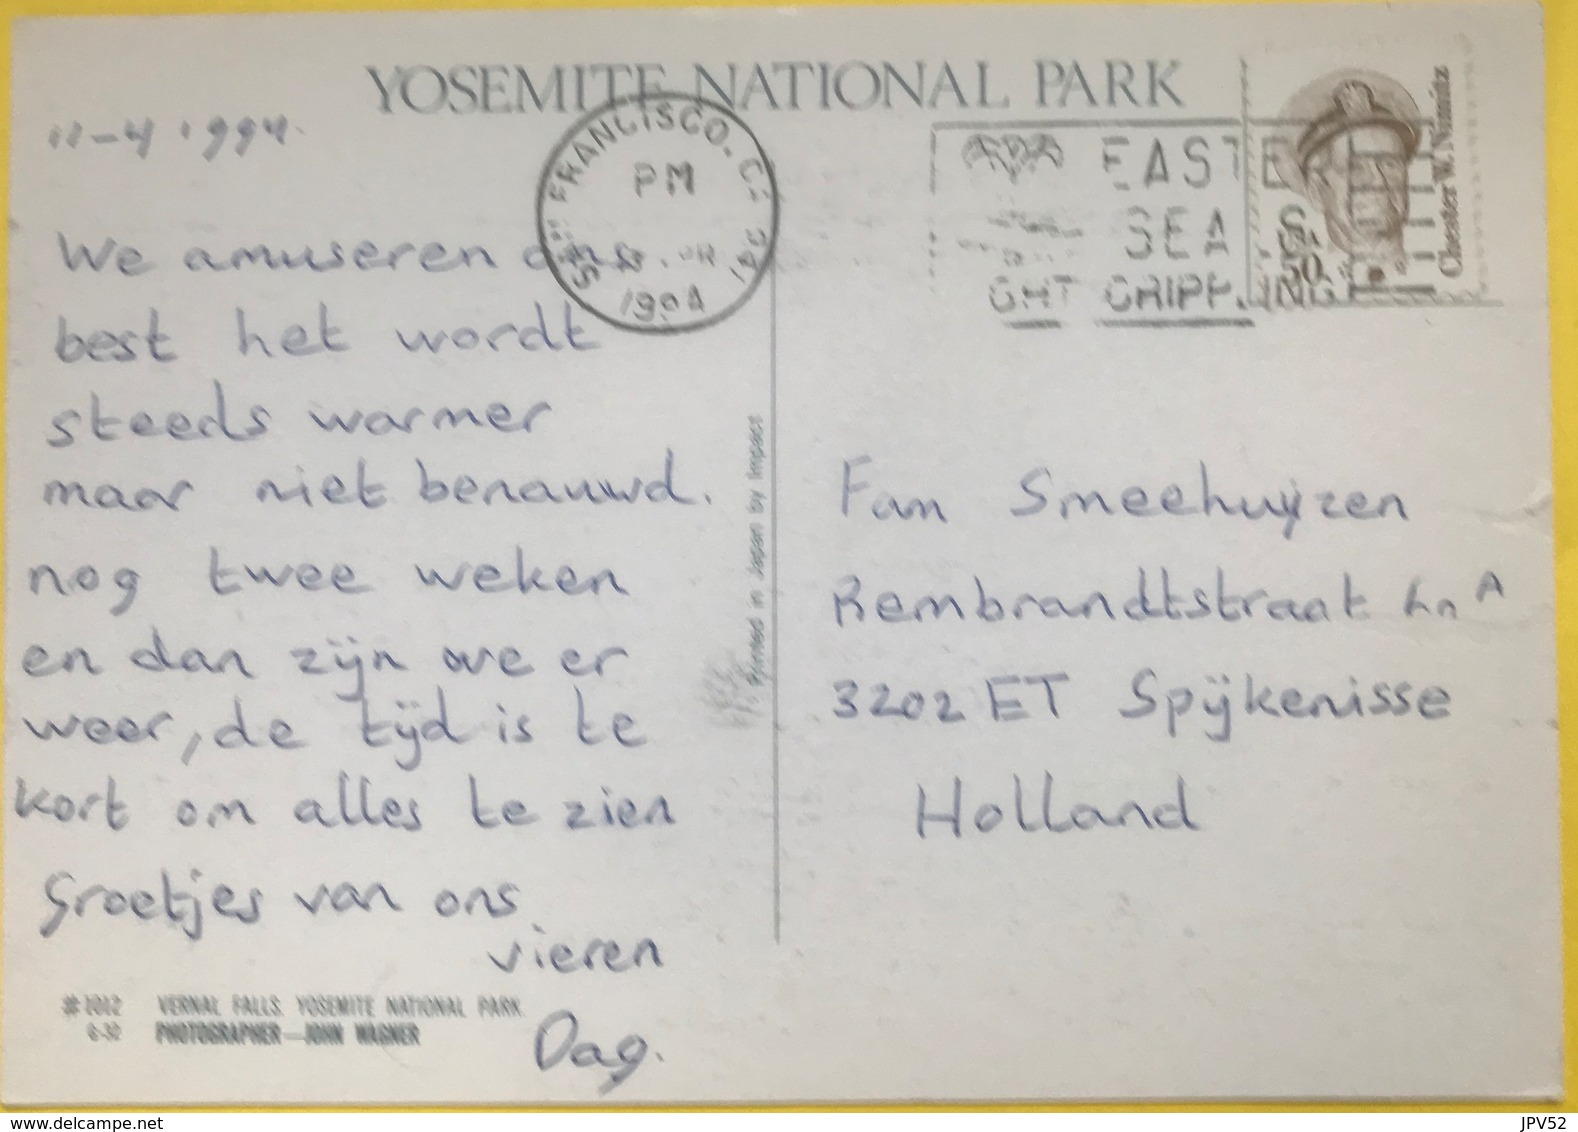 YOSEMITE NATIONAL PARK
11-4 1994.
FRANCISCO, CA
PM
1994
EASTER
SEA S
FIGHT CRIPPLING
Chester W. Nimitz
USA
50
We amuseren ons
best het wordt
steeds warmer
maar niet benauwd.
nog twee weken
en dan zijn we er
weer, de tijd is te
kort om alles te zien
Groetjes van ons
vieren
Dag.
Printed in Japan by Impact
Fam Smeehuijzen
Rembrandtstraat A
3202 ET Spijkenisse
Holland
#1012 VERNAL FALLS. YOSEMITE NATIONAL PARK.
6-30 PHOTOGRAPHER—JOHN WAGNER
www.delcampe.net
JPV52